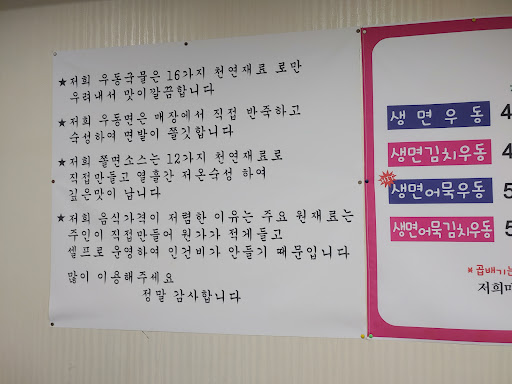 ★저희 우동국물은 16가지 천연재료 로만
우려내서 맛이깔끔합니다
★저희 우동면은 매장에서 직접 반죽하고
숙성하여 면발이 쫄깃합니다
★저희 쫄면소스는 12가지 천연재료로
직접만들고 열흘간 저온숙성 하여
깊은맛이 납니다
★저희 음식가격이 저렴한 이유는 주요 원재료는
주인이 직접만들어 원가가 적게들고
셀프로 운영하여 인건비가 안들기 때문입니다
많이 이용해주세요
정말 감사합니다
생면우동 4
생면김치우동 4
생면어묵우동 5
생면어묵김치우동 5
*곱배기는
저희매